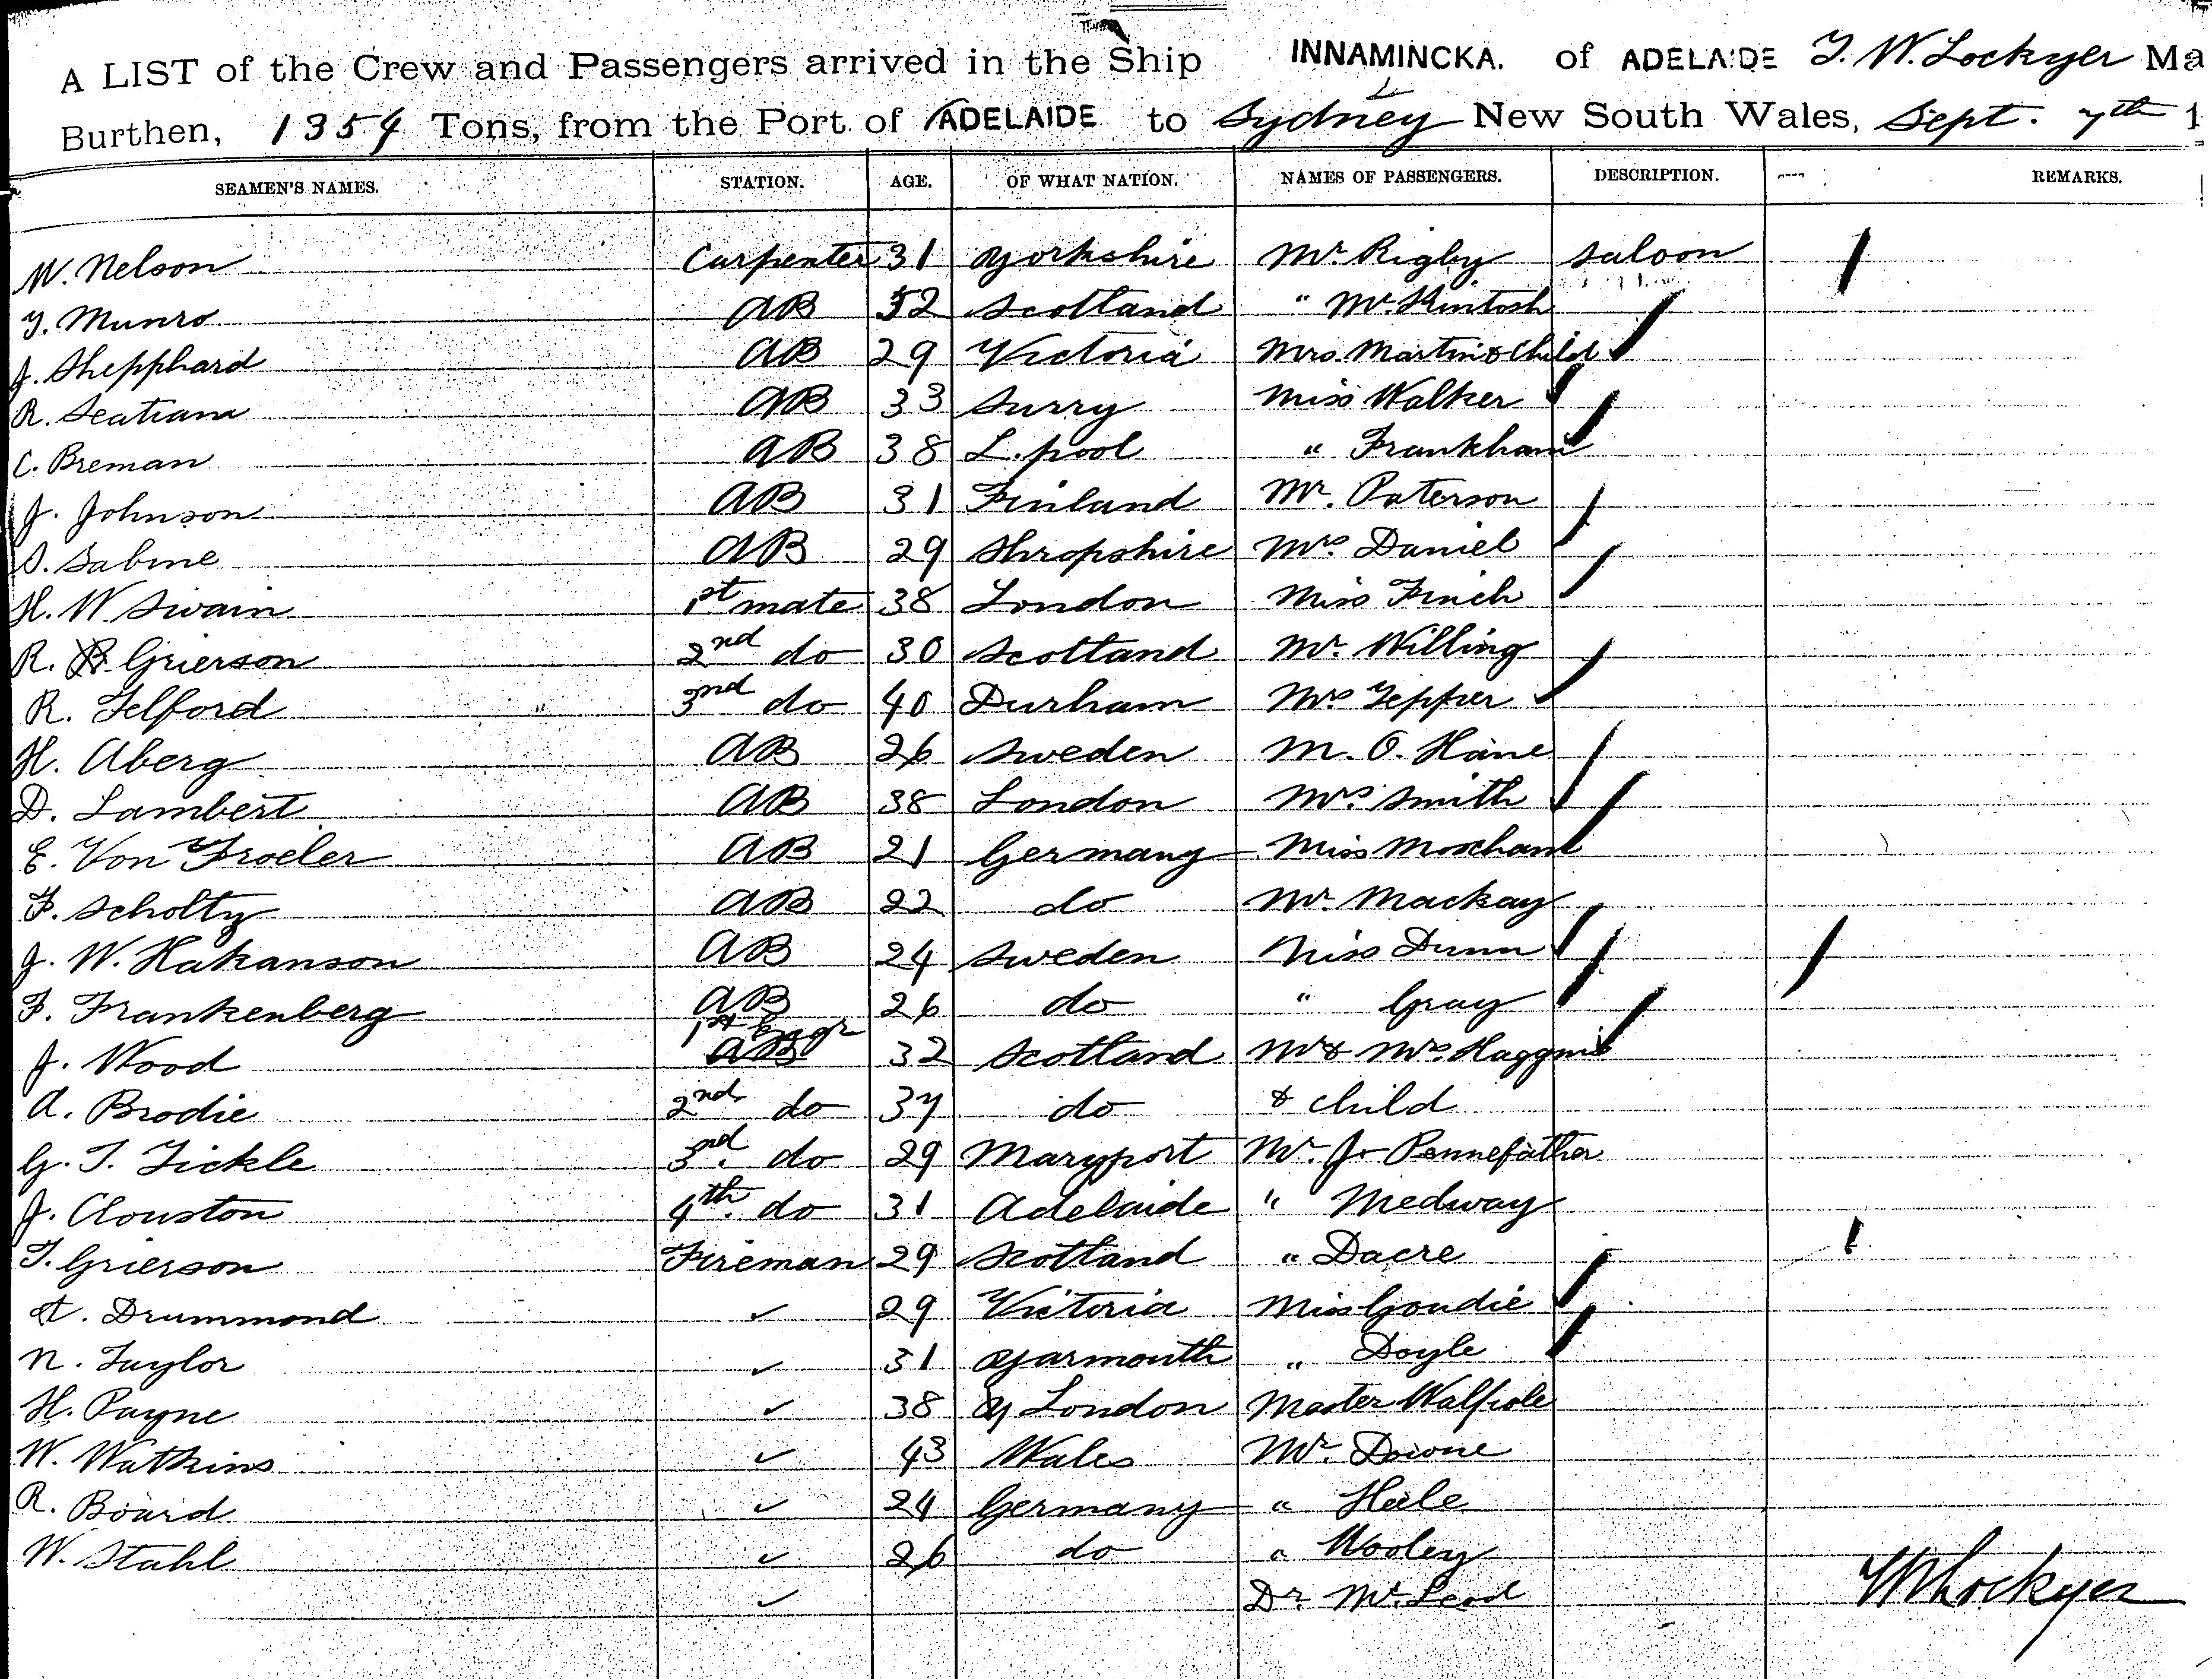 A LIST of the Crew and Passengers arrived in the Ship INNAMINCKA. of ADELAIDE T. W. Lockyer Ma
Burthen, 1354 Tons, from the Port of ADELAIDE to Sydney New South Wales, Sept. 7th 1
SEAMEN'S NAMES. STATION. AGE. OF WHAT NATION. NAMES OF PASSENGERS. DESCRIPTION. REMARKS.
W. Nelson Carpenter 31 Yorkshire Mr Rigby Saloon
Munro AB 52 Scotland " McKintosh
J. Shepphard AB 29 Victoria Mrs. Martin & Child
R. AB 33 Surry Miss Walker
C. Breman AB 38 L.pool " Frankham
J. Johnson AB 31 Finland Mr. Paterson
S. Sabine AB 29 Shropshire Mrs Daniel
H. W. Swain 1st mate 38 London Miss Finch
R. Grierson 2nd do 30 Scotland Mr. Willing
R. Telford 3nd do 40 Durham Mrs
H. Aberg AB 26 Sweden M. O. Hane
D. Lambert AB 38 London Mrs. Smith
E. Von AB 21 Germany Miss
F. Scholtz AB 22 do Mr. Mackay
J. W. Hakanson AB 24 Sweden Miss Dunn
F. Frankenberg AB 26 do " Gray
J. Wood 1st Engr AB 32 Scotland Mr & Mrs
A. Brodie 2nd do 37 do & child
G. T. Tickle 3nd. do 29 Maryport Mr. J. Pennefather
J. Clouston 4th. do 31 Adelaide " Medway
T. Grierson Fireman 29 Scotland " Dacre
A. Drummond ✓ 29 Victoria Miss Goudie
N. Taylor ✓ 31 Yarmouth " Doyle
H. Payne ✓ 38 London Master Walpole
W. Watkins ✓ 43 Wales Mr. Downe
R. Board ✓ 24 Germany " Hele
W. Stahl ✓ 26 do " Wooley
✓ Dr. McLeod
TWLockyer